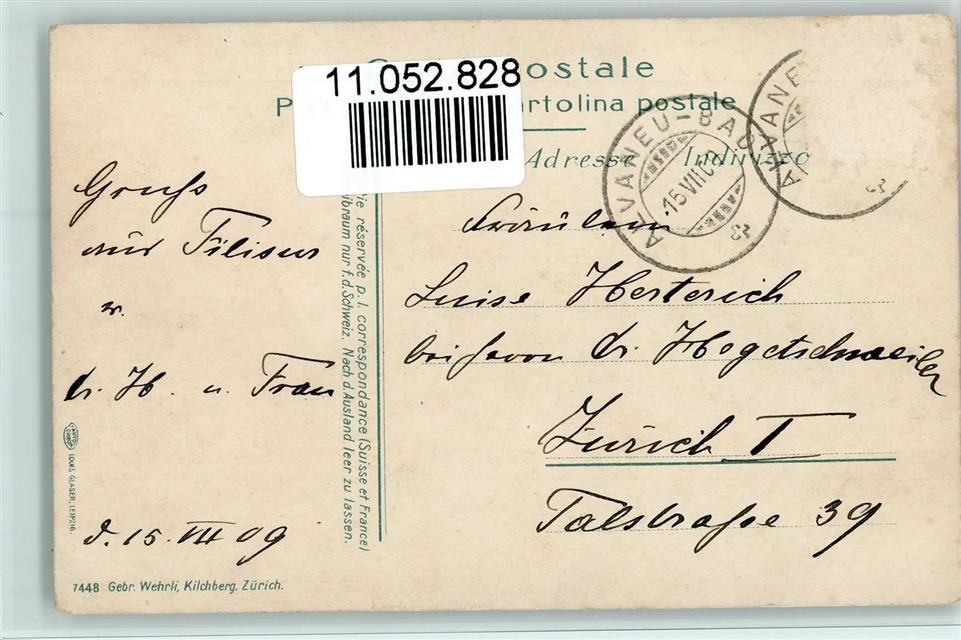 11.052.828
ostale
artolina postale
Adresse Indirizzo
ALVANEU-BAD
15 VII 09
ALVANE
Gruss
aus Filisur
v.
Dr. H. u. Frau
d. 15. VII 09
ie réservée p. l. correspondance (Suisse et France)
ibraum nur f. d. Schweiz. Nach d. Ausland leer zu lassen.
Fräulein
Luise Herterich
bei Herrn Dr. Hegetschweiler
Zürich I
Talstrasse 39
LOUIS GLASER, LEIPZIG.
7448 Gebr. Wehrli, Kilchberg, Zürich.